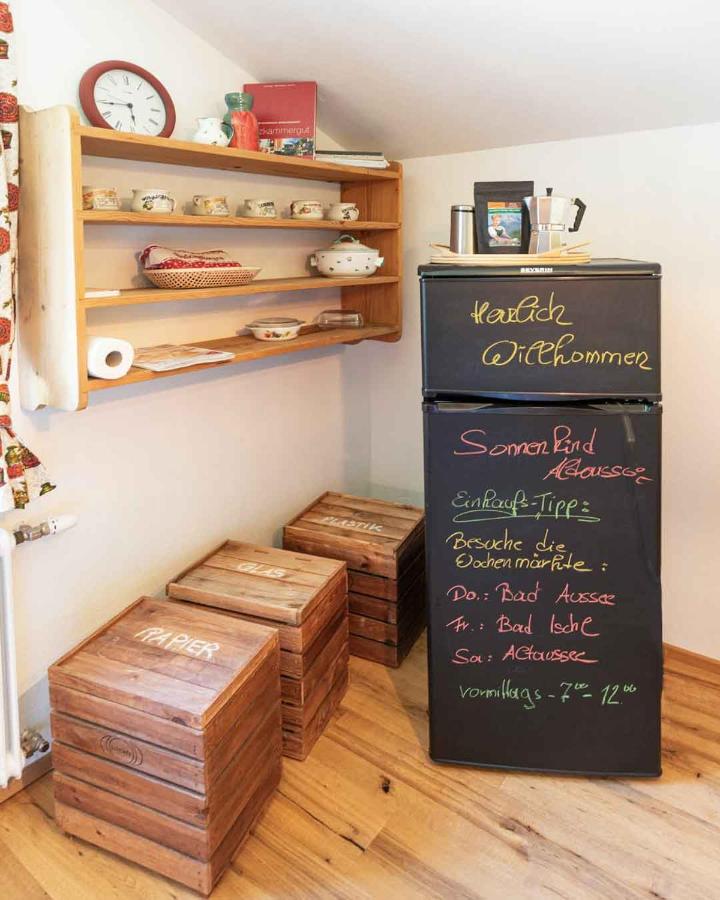 zkammergut
SEVERIN
Herzlich
Willkommen
Sonnenkind
Altaussee
Einkaufs-Tipp:
Besuche die
Wochenmärkte :
Do.: Bad Aussee
Fr.: Bad Ischl
Sa: Altaussee
vormittags - 7⁰⁰ - 12⁰⁰
PLASTIK
GLAS
PAPIER